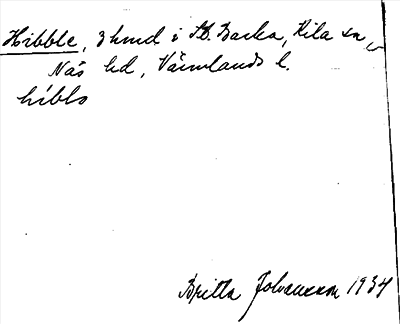 Hibble, 3 hmd i St. Backa, Kila sn,
Näs hd, Värmlands l.
hibls
Britta Johansson 1934